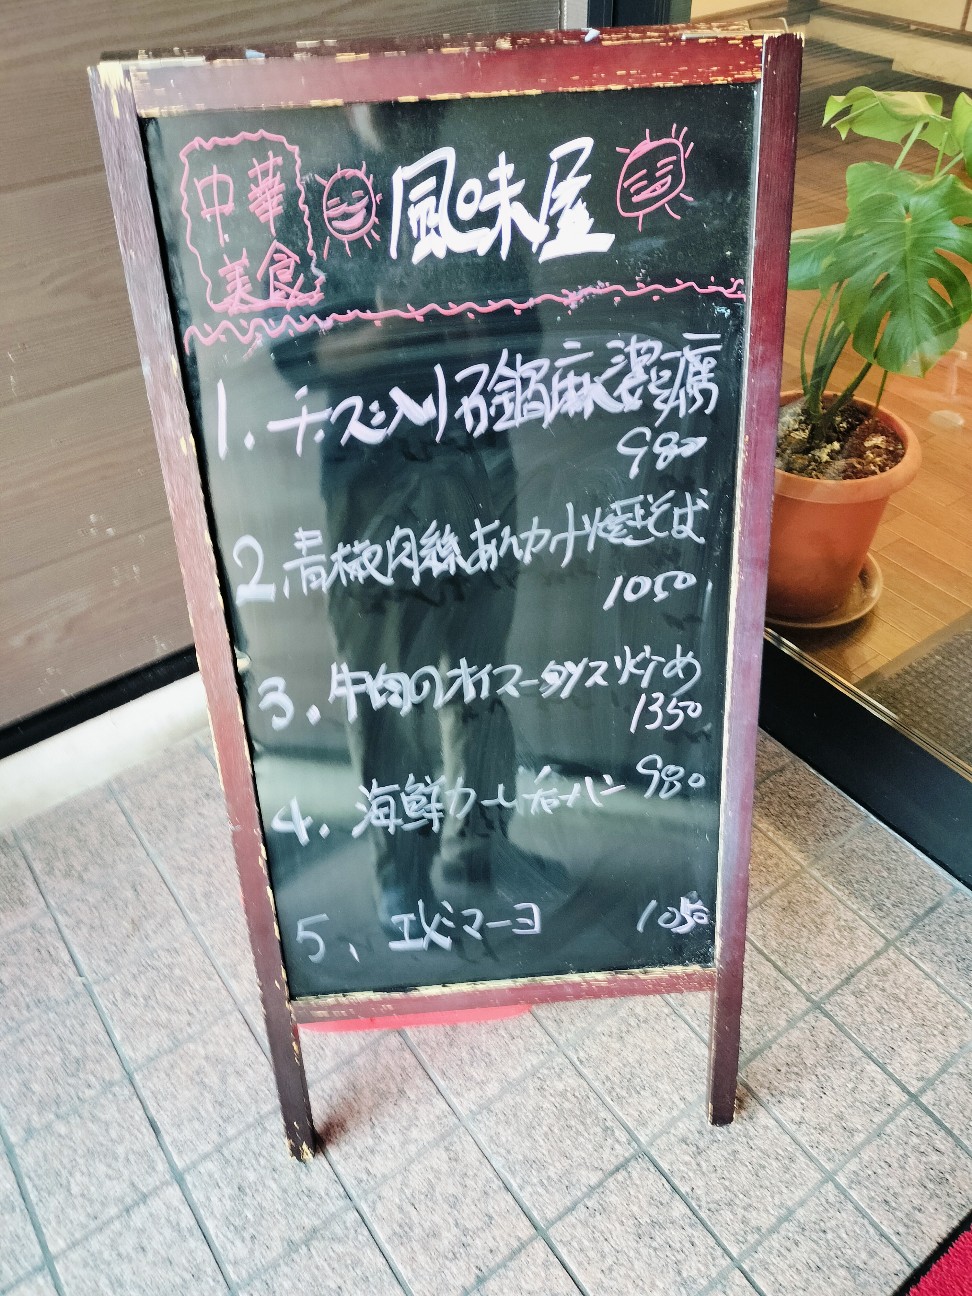 中華
美食
風味屋
1. チーズ入り石鍋麻婆豆腐
980
2. 青椒肉絲あんかけ焼そば
1050
3. 牛肉のオイスターソース炒め
1350
4. 海鮮カレー 980
5. エビマーヨ 1050